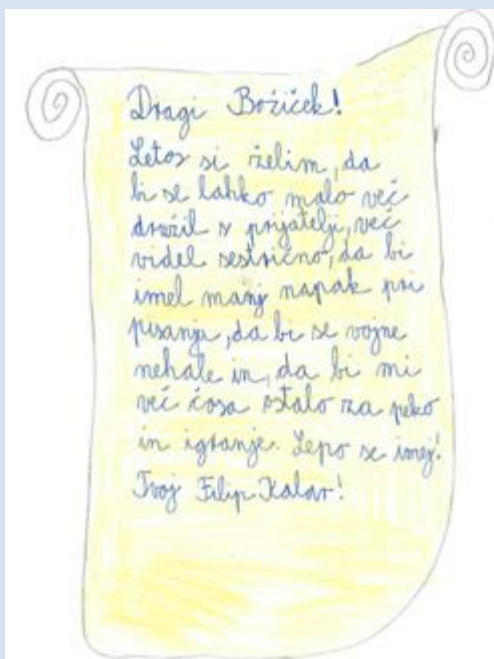 Dragi Božiček!
Letos si želim, da
bi se lahko malo več
družil s prijatelji, več
videl sestrično, da bi
imel manj napak pri
pisanju, da bi se vojne
nehale in, da bi mi
več časa ostalo za peko
in igranje. Lepo se imej!
Tvoj Filip Kalar!